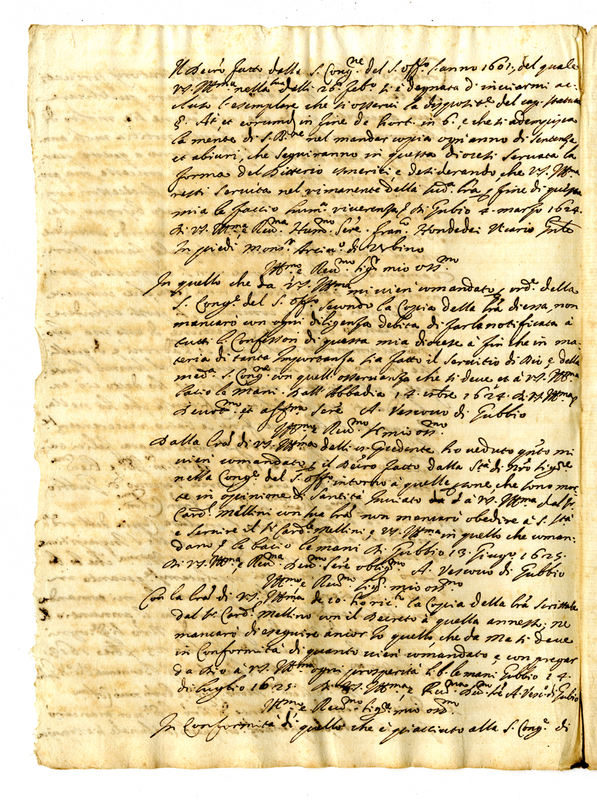 Il Decreto fatto dalla S. Congne del S. offo l'anno 1601, del quale
V.S. Illma nella sua delli 26 febo si è degnata d'inviarmi ac-
che si osservi la dispositne del cap. statuta
in fine de haeret. in 6o, e che si adempisca
la mente di S. Btne nel mandar copia ogni anno di sentenze
et abiure, che seguiranno in questa diocesi servata la
forma del e desiderando che V.S. Illma
resti servita nel rimanente della sua fine di questa
mia le faccio humma riverenza. Di Gubio 4 marzo 1624
Di V.S. Illma e Revma Hummo Serre Franco Hondedei Vicario
In piedi Monsr Arcivo di Urbino
Illmo e Revmo Sigr mio ossmo
In quello che da V.S. Illma mi vien comandato p ordne della
S. Congne del S. offo secondo la Copia della lra di essa, non
mancarò con ogni diligenza debita di farla notificata à
tutti li Confessori di questa mia diocese à fin che in ma-
teria di tanta importanza sia fatto il servitio di Dio e della
meda S. Congne con quell'osservanza che si deve et à V.S. Illma
bacio le mani. Dall'Abbadia 14 1624. Di V.S. Illma e
Devotmo et affmo Serre A. Vescovo di Gubbio
Illmo e Revmo Sr mio ossmo
Dalla lra di V.S. Illma delli ho veduto qnto mi
vien comandato, e il Decro fatto dalla Stà di Nro Sigre
nella Congne del S. offo intorno à quelle psone, che sono mor-
te in opinione di santità inviato à V.S. Illma dal Sr
Cardl Mellini con sue lre non mancarò obedire à S. Stà
e servire il Sr Cardl Mellini, e V.S. Illma in quello che coman-
dano e le bacio le mani Di Gubbio 13 Giugo 1625.
Di V.S. Illma e Revma Devmo Serre obligmo A. Vescovo di Gubbio
Illmo e Revmo Sigr mio ossmo
Con la lra di V.S. Illma la Copia della lra scrittale
dal Sr Cardl Mellino con il Decreto à quella annesso, ne
mancarò di eseguire ancor'io quello che da me si deve
in conformità di quanto vien comandato, e con pregar
da Dio à V.S. Illma ogni prosperità li b. le mani Gubbio 14
di luglio 1625. Di V.S. Illma e Revma Devmo A. Vesco di Gubio
Illmo e Revmo Sigr mio ossmo
In conformità di quello che è piacciuto alla S. Congne di